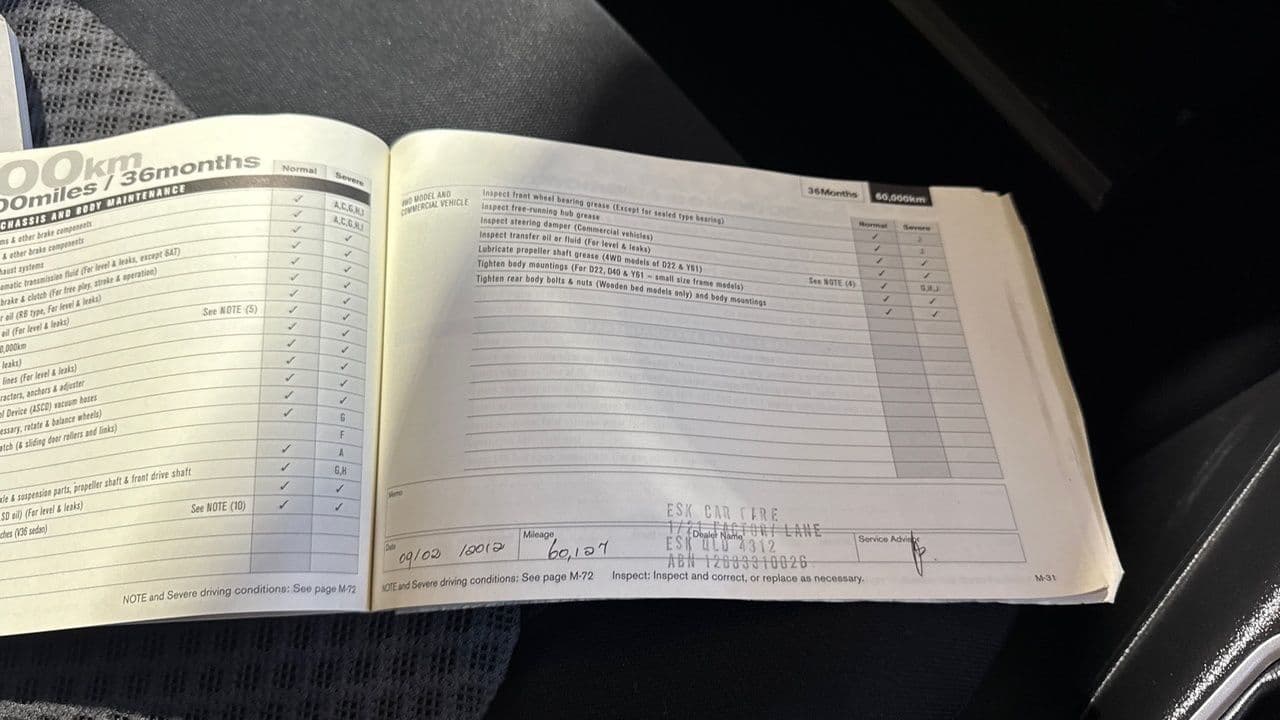 00km
00miles / 36months
Normal Severe
CHASSIS AND BODY MAINTENANCE
ms & other brake components ✓ A,C,G,H,I
& other brake components ✓ A,C,G,H,I
haust systems ✓ ✓
omatic transmission fluid (For level & leaks, except 6AT) ✓ ✓
brake & clutch (For free play, stroke & operation) ✓ ✓
r oil (RB type, For level & leaks) ✓ ✓
oil (For level & leaks) See NOTE (5) ✓ ✓
0,000km ✓ ✓
leaks) ✓ ✓
lines (For level & leaks) ✓ ✓
ractors, anchors & adjuster ✓ ✓
ol Device (ASCD) vacuum hoses ✓ ✓
essary, rotate & balance wheels) ✓ G
atch (& sliding door rollers and links) F
✓ A
xle & suspension parts, propeller shaft & front drive shaft ✓ G,H
LSD oil) (For level & leaks) ✓ ✓
ches (V36 sedan) See NOTE (10) ✓ ✓
NOTE and Severe driving conditions: See page M-72
36Months 60,000km
Normal Severe
4WD MODEL AND
COMMERCIAL VEHICLE
Inspect front wheel bearing grease (Except for sealed type bearing) ✓ J
Inspect free-running hub grease ✓ J
Inspect steering damper (Commercial vehicles) ✓ ✓
Inspect transfer oil or fluid (For level & leaks) ✓ ✓
Lubricate propeller shaft grease (4WD models of D22 & Y61) ✓ G,H,J
Tighten body mountings (For D22, D40 & Y61 – small size frame models) See NOTE (4) ✓ ✓
Tighten rear body bolts & nuts (Wooden bed models only) and body mountings ✓ ✓
Memo
ESK CAR CARE
1/21 FACTORY LANE
ESK QLD 4312
ABN 12883310026
Date 09/02 /2012
Mileage 60,127
Dealer Name
Service Advisor
NOTE and Severe driving conditions: See page M-72 Inspect: Inspect and correct, or replace as necessary.
M-31